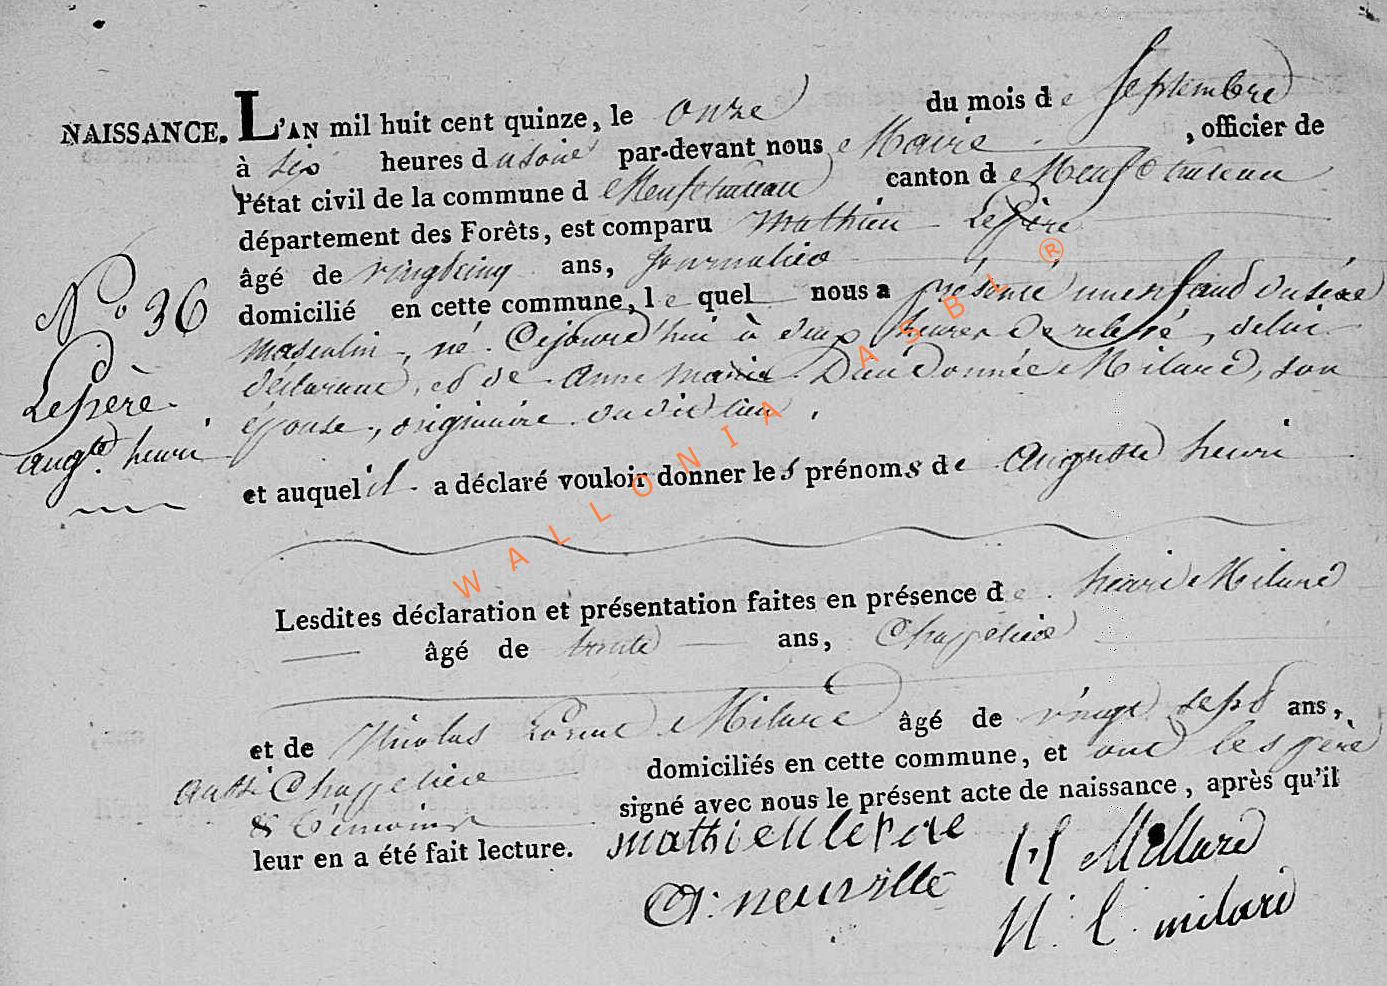 NAISSANCE. L'AN mil huit cent quinze, le onze du mois de Septembre
à six heures du soir par-devant nous Maire, officier de
l'état civil de la commune de Neufchateau canton de Neufchateau
département des Forêts, est comparu Mathieu Lepère
âgé de vingt cinq ans, journalier
N° 36
domicilié en cette commune, lequel nous a présenté un enfant du sexe
masculin, né cejourd'hui à deux heures de relevé, de lui
déclarant, et de Anne Marie Dieudonnée Milard, son
Lepère
épouse, originaire dudit lieu.
augte. henri
et auquel il a déclaré vouloir donner les prénoms de Auguste henri
Lesdites déclaration et présentation faites en présence de henri Milard
âgé de trente ans, Chappelier
et de Nicolas Milard âgé de vingt sept ans,
Chappelier domiciliés en cette commune, et ont les père
& témoins signé avec nous le présent acte de naissance, après qu'il
leur en a été fait lecture. mathieu lepere H Millard
neuville
N. l. milard
WALLONIA ASBL ®